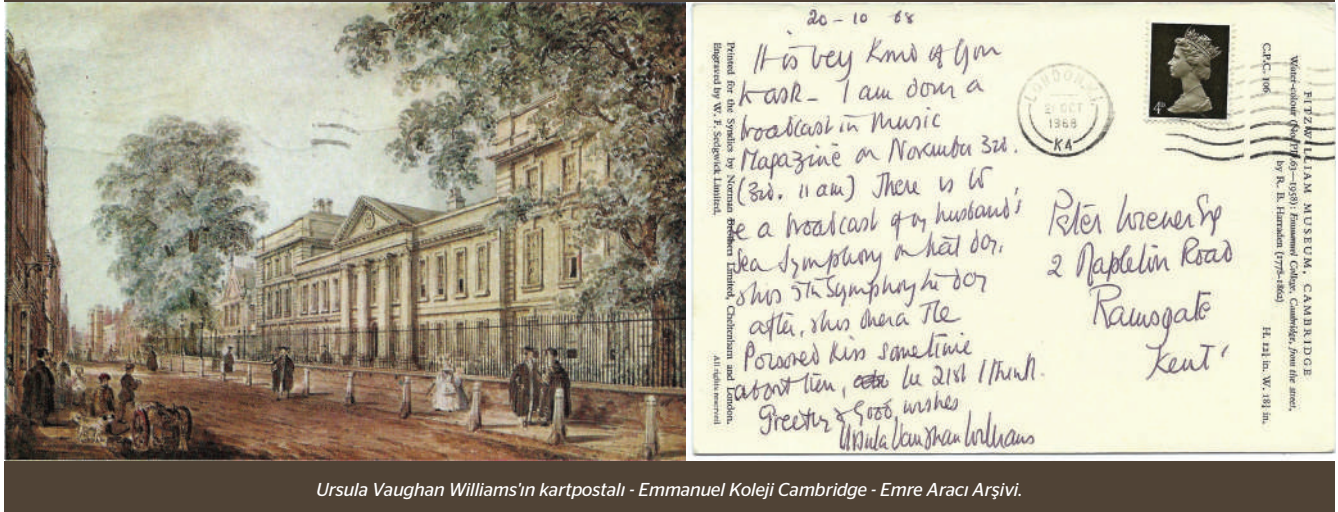 20 - 10 68
It is very kind of you
to ask - I am doing a
broadcast in Music
Magazine on November 3rd.
(3rd. 11 am) There is to
be a broadcast of my husband's
Sea Symphony on that day.
& his 5th Symphony the day
after, & his opera The
Poisoned Kiss sometime
about then, the 21st I think.
Greetings & Good wishes
Ursula Vaughan Williams
Printed for the Syndics by Norman Brothers Limited, Cheltenham and London.
Engraved by W. F. Sedgwick Limited.
All rights reserved
LONDON
OCT
1968
4d
Peter Wiener Esq
2 Napleton Road
Ramsgate
Kent
FITZWILLIAM MUSEUM, CAMBRIDGE
Water-colour Emmanuel College, Cambridge, from the street,
by R. B. Harraden (1778-1862)
C.P.C. 106
H. 12¼ in. W. 18¼ in.
Ursula Vaughan Williams'ın kartpostalı - Emmanuel Koleji Cambridge - Emre Aracı Arşivi.